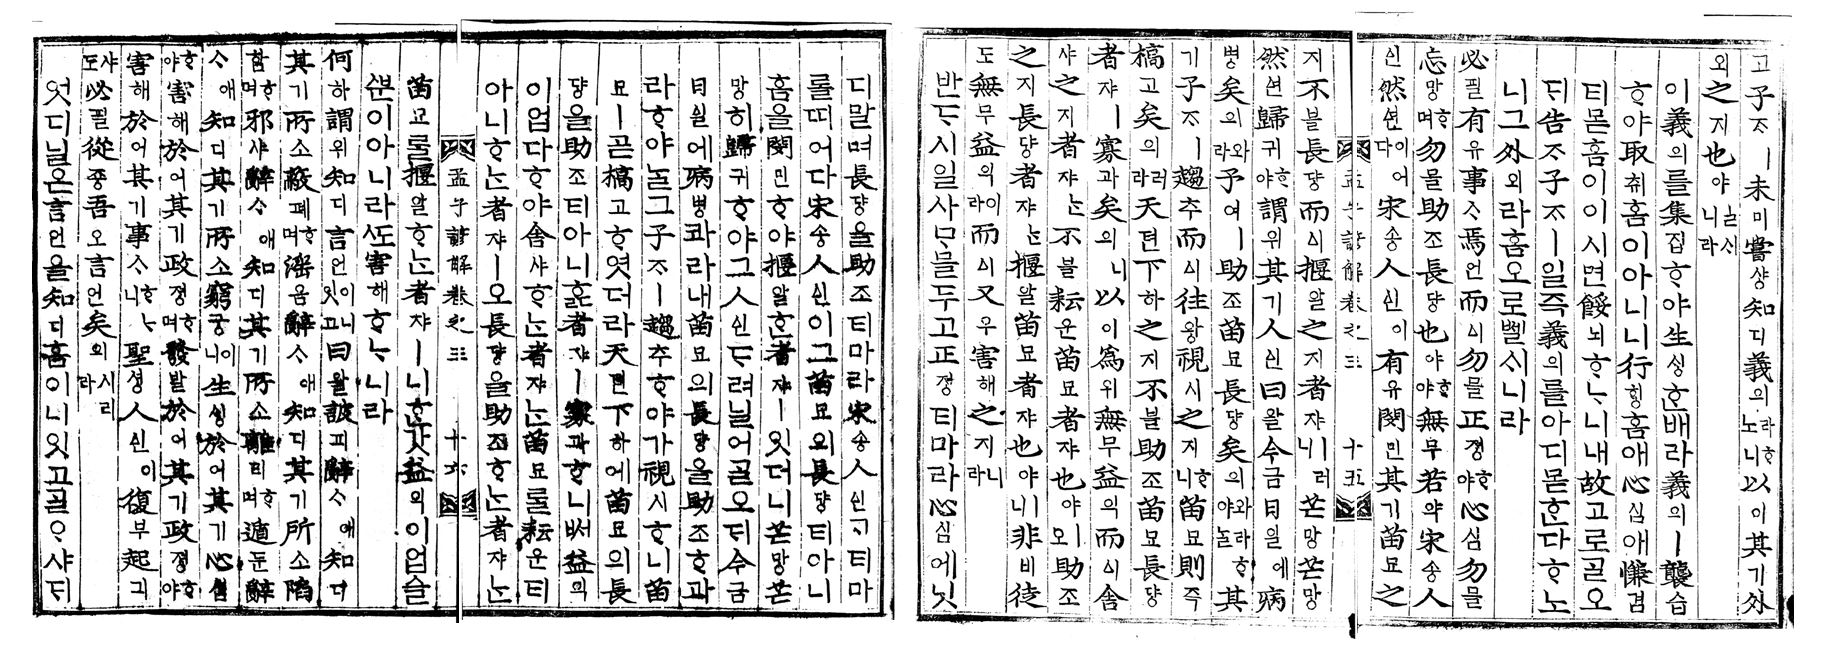 고子ᄌᆞㅣ未미嘗샹知디義의라ᄒᆞ노니以이其기外
외之지也야ᄂᆞᆯ시니라
이義의를集집ᄒᆞ야生ᄉᆡᆼᄒᆞᆫ배라義의ㅣ襲습
ᄒᆞ야取ᄎᆔ홈이아니니行ᄒᆡᆼ홈애心심애慊겸
티몯홈이이시면餒뇌ᄒᆞᄂᆞ니내故고로ᄀᆞᆯ오
ᄃᆡ告子ᄌᆞㅣ일즉義의를아디몯ᄒᆞᆫ다ᄒᆞ노
니그外외라홈오로ᄡᅦᆯ시니라
必필有유事ᄉᆞ焉언而ᅀᅵ勿믈正졍ᄒᆞ야心심勿믈
忘망ᄒᆞ며勿믈助조長댱也야ᄒᆞ야無무若약宋송人
ᅀᅵᆫ然ᅀᅧᆫ이어다宋송人ᅀᅵᆫ이有유閔민其기苗묘之
孟子諺解卷之三 十五
지不블長댱而ᅀᅵ揠알之지者쟈ㅣ러니芒망芒망
然ᅀᅧᆫ歸귀ᄒᆞ야謂위其기人ᅀᅵᆫ曰왈今금日ᅀᅵᆯ에病
병矣의와라予여ㅣ助조苗묘長댱矣의와라ᄒᆞ야ᄂᆞᆯ其
기子ᄌᆞㅣ趨추而ᅀᅵ往왕視시之지ᄒᆞ니苗묘則즉
槁고矣의러라天텬下하之지不블助조苗묘長댱
者쟈ㅣ寡과矣의니以이爲위無무益익而ᅀᅵ舍
샤之지者쟈ᄂᆞᆫ不블耘운苗묘者쟈也야ㅣ오助조
之지長댱者쟈ᄂᆞᆫ揠알苗묘者쟈也야ㅣ니非비徒
도無무益익이라而ᅀᅵ又우害해之지니라
반ᄃᆞ시일사ᄆᆞᆯ두고正졍티마라心심에닛
디말며長댱을助조티마라宋송人ᅀᅵᆫᄀᆞ티마
롤띠어다宋송人ᅀᅵᆫ이그苗묘의長댱티아니
홈을閔민ᄒᆞ야揠알ᄒᆞᆫ者쟈ㅣ잇더니芒망芒
망히歸귀ᄒᆞ야그人ᅀᅵᆫᄃᆞ려닐어ᄀᆞᆯ오ᄃᆡ今금
日ᅀᅵᆯ에病병콰라내苗묘의長댱을助조ᄒᆞ과
라ᄒᆞ야ᄂᆞᆯ그子ᄌᆞㅣ趨추ᄒᆞ야가視시ᄒᆞ니苗
묘ㅣ곧槁고ᄒᆞ엿더라天텬下하에苗묘의長
댱을助조티아니ᄒᆞᆯ者쟈ㅣ寡과ᄒᆞ니ᄡᅥ益익의
이업다ᄒᆞ야舍샤ᄒᆞᄂᆞᆫ者쟈ᄂᆞᆫ苗묘를耘운티
아니ᄒᆞᄂᆞᆫ者쟈ㅣ오長댱을助조ᄒᆞᄂᆞᆫ者쟈ᄂᆞᆫ
孟子諺解卷之三 十六
苗묘를揠알ᄒᆞᄂᆞᆫ者쟈ㅣ니ᄒᆞᆫ갓益익이업슬
ᄲᅮᆫ이아니라ᄯᅩ害해ᄒᆞᄂᆞ니라
何하謂위知디言언이니잇고曰왈詖피辭ᄉᆞ애知디
其기所소蔽폐ᄒᆞ며淫음辭ᄉᆞ애知디其기所소陷
함ᄒᆞ며邪샤辭ᄉᆞ애知디其기所소離리ᄒᆞ며遁둔辭
ᄉᆞ애知디其기所소窮궁이니生ᄉᆡᆼ於어其기心심
ᄒᆞ야害해於어其기政졍ᄒᆞ며發발於어其기政졍ᄒᆞ야
害해於어其기事ᄉᆞᄒᆞᄂᆞ니聖셩人ᅀᅵᆫ이復부起긔
샤도必필從죵吾오言언矣의시리라
엇디닐온言언을知디홈이니잇고ᄀᆞᆯᄋᆞ샤ᄃᆡ